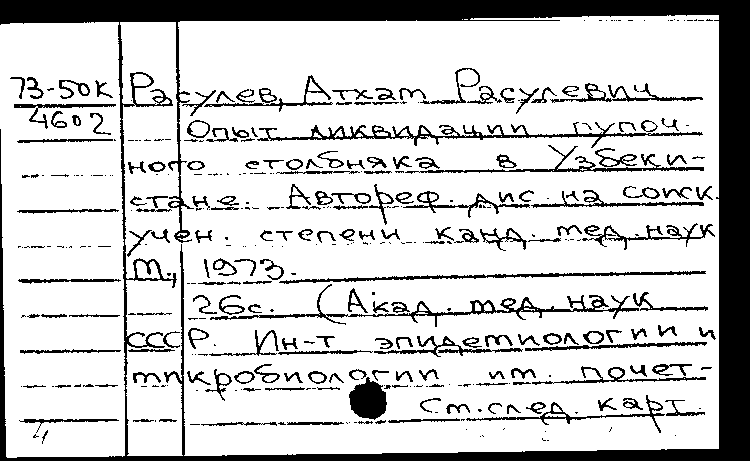 73-50к
4602
Расулев, Атхам Расулевич
Опыт ликвидации пупоч-
ного столбняка в Узбеки-
стане. Автореф. дис. на соиск.
учен. степени канд. мед. наук
М., 1973.
26с. (Акад. мед. наук
СССР. Ин-т эпидемиологии и
микробиологии им. почет-
См. след. карт.
4